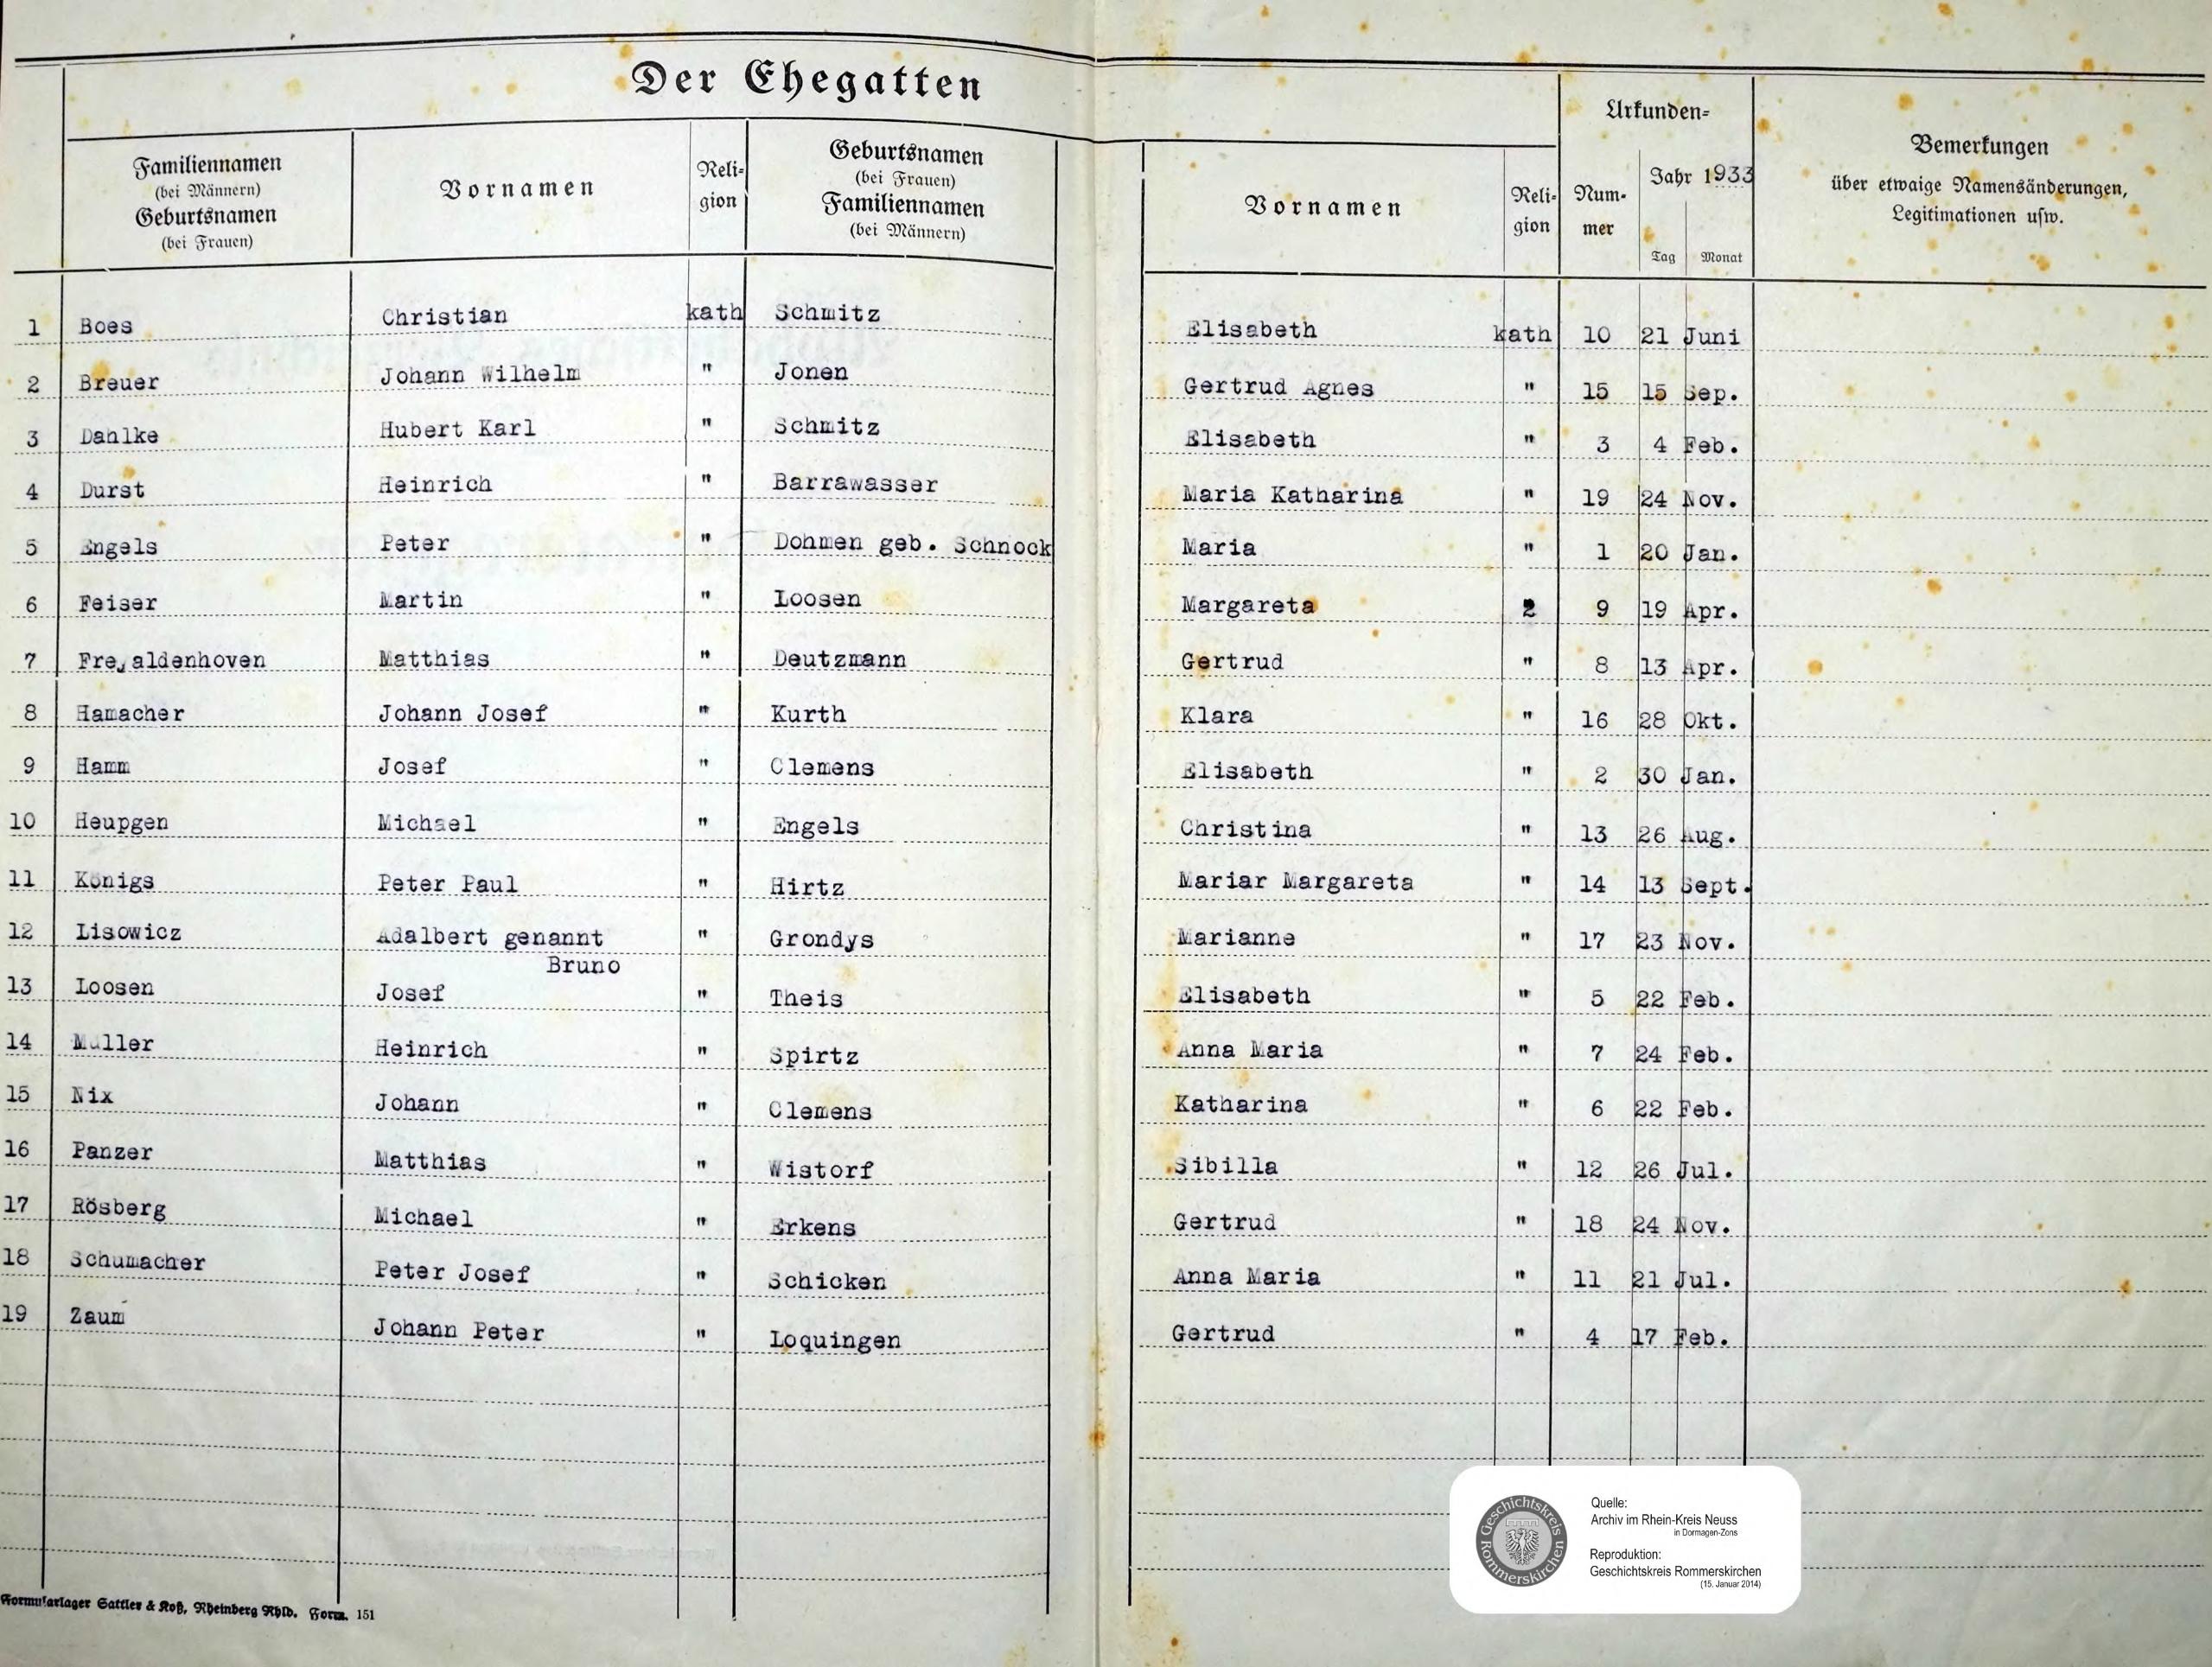 Der Ehegatten
Familiennamen
(bei Männern)
Geburtsnamen
(bei Frauen)
Vornamen
Reli-
gion
Geburtsnamen
(bei Frauen)
Familiennamen
(bei Männern)
Vornamen
Reli-
gion
Urkunden-
Num-
mer
Jahr 1933
Tag
Monat
Bemerkungen
über etwaige Namensänderungen,
Legitimationen usw.
1 Boes Christian kath Schmitz Elisabeth kath 10 21 Juni
2 Breuer Johann Wilhelm " Jonen Gertrud Agnes " 15 15 Sep.
3 Dahlke Hubert Karl " Schmitz Elisabeth " 3 4 Feb.
4 Durst Heinrich " Barrawasser Maria Katharina " 19 24 Nov.
5 Engels Peter " Dohmen geb. Schnock Maria " 1 20 Jan.
6 Feiser Martin " Loosen Margareta 9 19 Apr.
7 Matthias " Deutzmann Gertrud " 8 13 Apr.
8 Hamacher Johann Josef " Kurth Klara " 16 28 Okt.
9 Hamm Josef " Clemens Elisabeth " 2 30 Jan.
10 Heupgen Michael " Engels Christina " 13 26 Aug.
11 Königs Peter Paul " Hirtz Mariar Margareta " 14 13 Sept.
12 Lisowicz Adalbert genannt " Grondys Marianne " 17 23 Nov.
Bruno
13 Loosen Josef " Theis Elisabeth " 5 22 Feb.
14 Müller Heinrich " Spirtz Anna Maria " 7 24 Feb.
15 Nix Johann " Clemens Katharina " 6 22 Feb.
16 Panzer Matthias " Wistorf Sibilla " 12 26 Jul.
17 Rösberg Michael " Erkens Gertrud " 18 24 Nov.
18 Schumacher Peter Josef " Schicken Anna Maria " 11 21 Jul.
19 Zaum Johann Peter " Loquingen Gertrud " 4 17 Feb.
Formularlager Sattler & Koß, Rheinberg Rhld. Form. 151
Geschichtskreis
Rommerskirchen
Quelle:
Archiv im Rhein-Kreis Neuss
in Dormagen-Zons
Reproduktion:
Geschichtskreis Rommerskirchen
(15. Januar 2014)